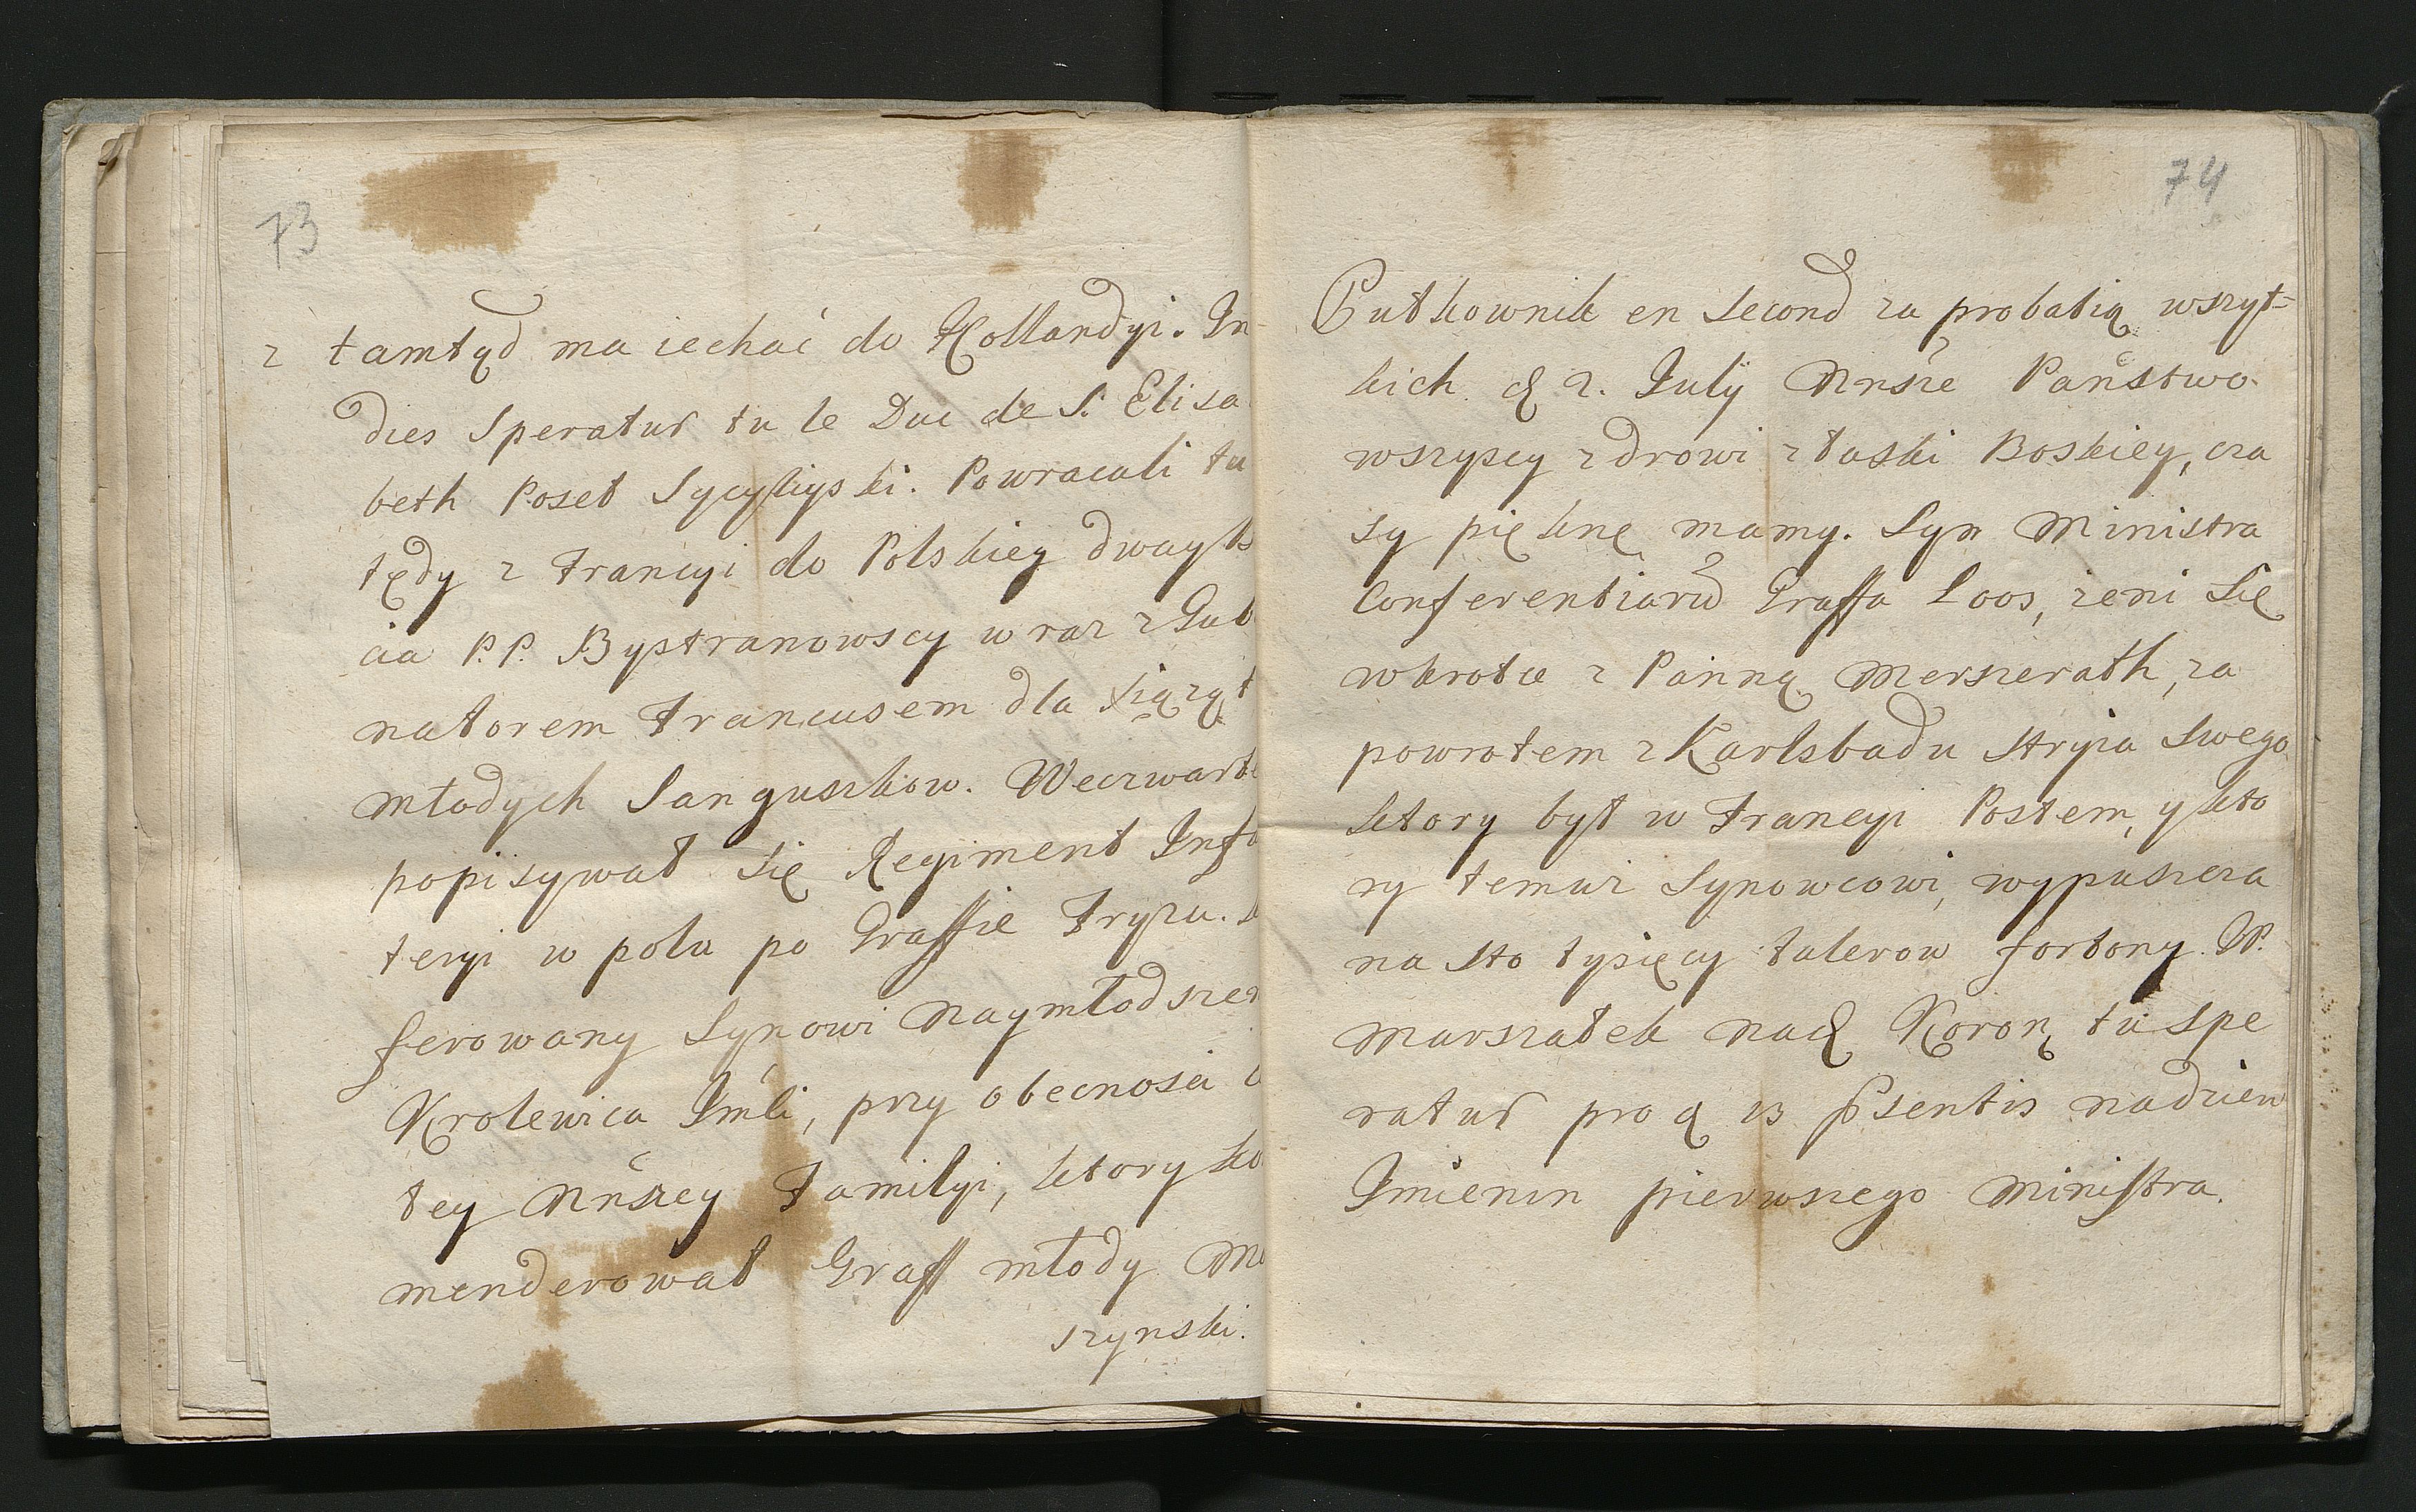 73
z tamtąd ma iechać do Hollandyi. In-
dies Speratur tu le Duc de S. Elisa
beth Poseł Sycyliyski. Powracali tu
tędy z Francyi do Polskiey dway
cia P.P. Bystranowscy wraz z Gub
natorem Francusem dla Xiążąt
młodych Sanguszkow. We czwart
popisywał się Regiment Infa
teryi w polu po Graffie Fryzu.
ferowany Synowi naymłodsze
Krolewica Jmći, przy obecnosci
tey Nrszey Familyi, ktory ko
menderował Graff młody Mo
szynski.
74
Pułkownik en Second za probatią wszyt=
kich. d 2. July Nrsze Państwo
wszyscy zdrowi z łaski Boskiey, cza
sy piękne mamy. Syn Ministra
Conferentiarū Graffa Loos, żeni Się
wkrotce z Panną Merszerath, za
powrotem z Karlsbadu Stryia Swego
ktory był w Francyi Posłem, y kto
ry temuz Synowcowi, wypuszcza
na Sto tysięcy talerow fortony. JP.
Marszałek nad Koron tu spe
ratur pro d 13 psentis nadzien
Jmienin pierwszego Ministra.